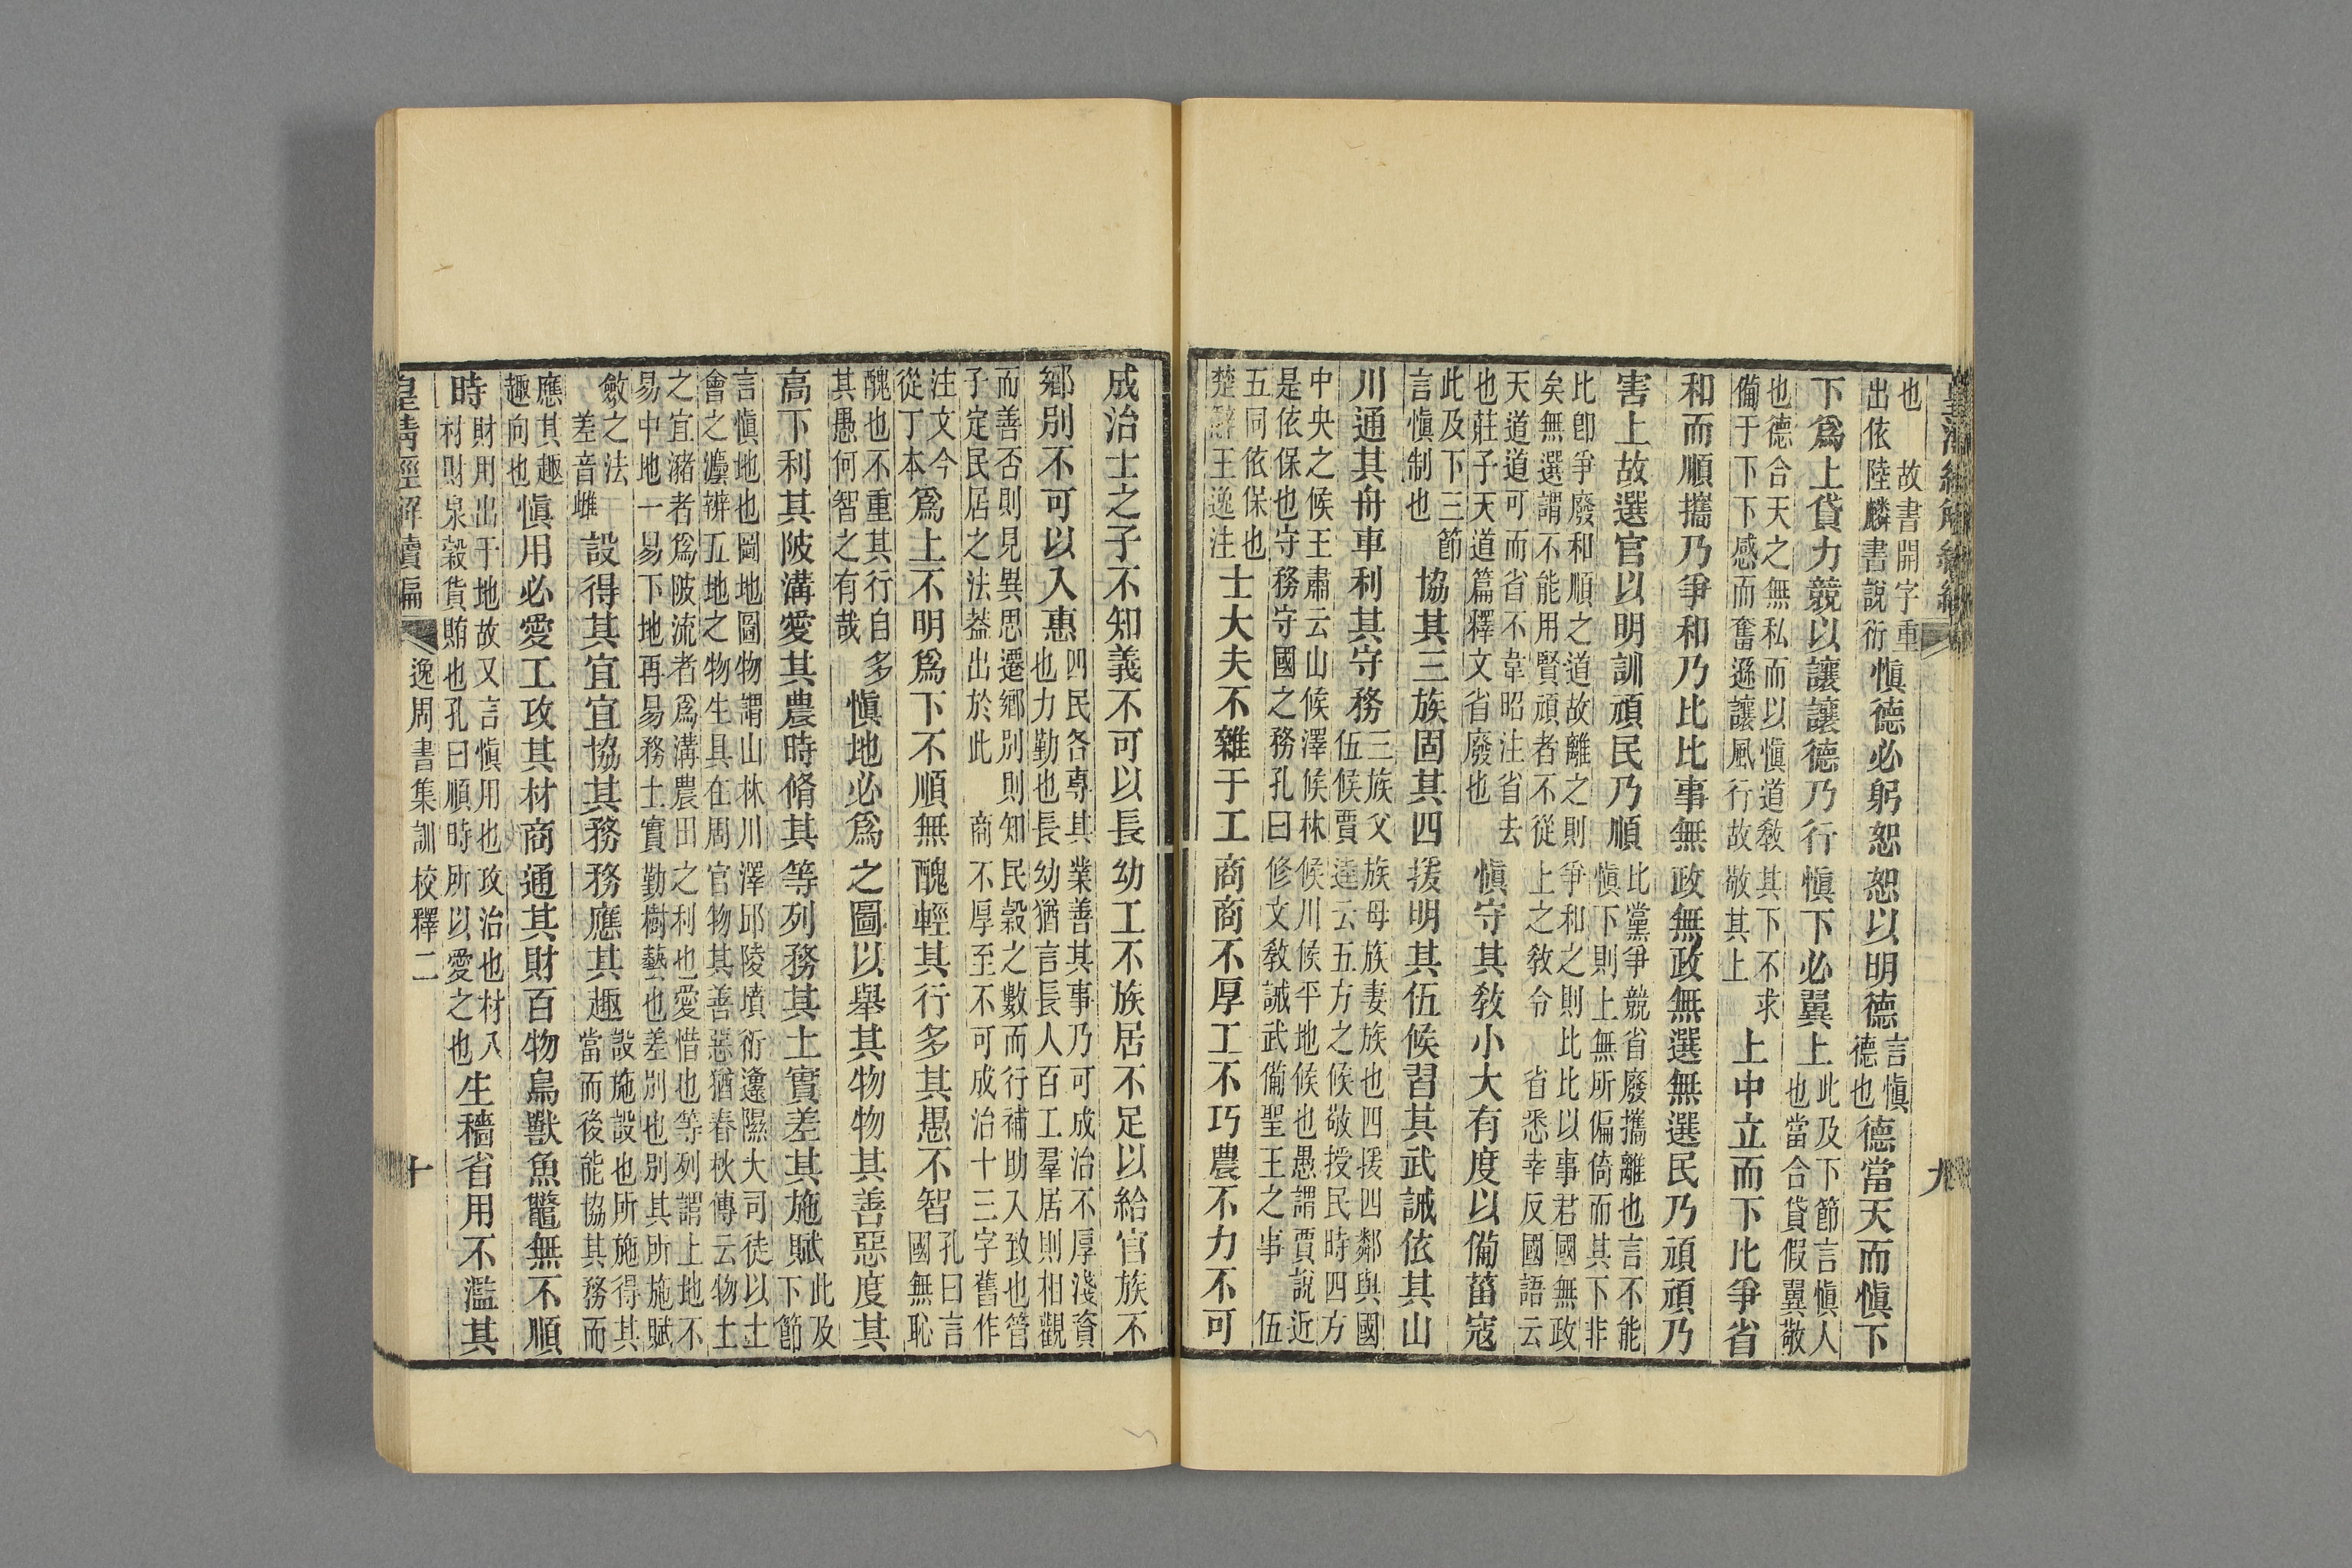 皇清經解續編 九
也　故書開字重
出依陸麟書說衍
慎德必躬恕恕以明德
言慎
德也
德當天而慎下
下爲上貸力競以讓讓德乃行慎下必翼上
此及下節言慎人
也當合貸假翼敬
也德合天之無私而以慎道敎其下不求
備于下下感而奮遜讓風行故敬其上
上中立而下比爭省
和而順攜乃爭和乃比比事無政無政無選無選民乃頑頑乃
害上故選官以明訓頑民乃順
比黨爭競省廢攜離也言不能
慎下則上無所偏倚而其下非
比卽爭廢和順之道故離之則爭和之則比比以事君國無政
矣無選謂不能用賢頑者不從上之敎令　省悉幸反國語云
天道道可而省不韋昭注省去
也莊子天道篇釋文省廢也
慎守其敎小大有度以備菑寇
此及下三節
言慎制也
協其三族固其四援明其伍候習其武誡依其山
川通其舟車利其守務
三族父族母族妻族也四援四鄰與國
伍候賈逵云五方之候敬授民時四方
中央之候王肅云山候澤候林候川候平地候也愚謂賈說近
是依保也守務守國之務孔曰修文敎誡武備聖王之事　伍
五同依保也
楚辭王逸注
士大夫不雜于工商商不厚工不巧農不力不可
成治士之子不知義不可以長幼工不族居不足以給官族不
鄉別不可以入惠
四民各專其業善其事乃可成治不厚淺資
也力勤也長幼猶言長人百工羣居則相觀
而善否則見異思遷鄉別則知民穀之數而行補助入致也管
子定民居之法葢出於此　商不厚至不可成治十三字舊作
注文今
從丁本
爲上不明爲下不順無醜輕其行多其愚不智
孔曰言
國無恥
醜也不重其行自多
其愚何智之有哉
慎地必爲之圖以舉其物物其善惡度其
高下利其陂溝愛其農時脩其等列務其土實差其施賦
此及
下節
言慎地也圖地圖物謂山林川澤邱陵墳衍邍隰大司徒以土
會之灋辨五地之物生具在周官物其善惡猶春秋傳云物土
之宜瀦者爲陂流者爲溝農田之利也愛惜也等列謂上地不
易中地一易下地再易務土實勤樹藝也差別也別其所施賦
斂之法
差音雌
設得其宜宜協其務務應其趣
設施設也所施得其
當而後能協其務而
應其趣
趣向也
慎用必愛工攻其材商通其財百物鳥獸魚鼈無不順
時
財用出于地故又言慎用也攻治也材入
材財泉穀貨賄也孔曰順時所以愛之也
生穡省用不濫其
皇清經解續編 逸周書集訓校釋二 十